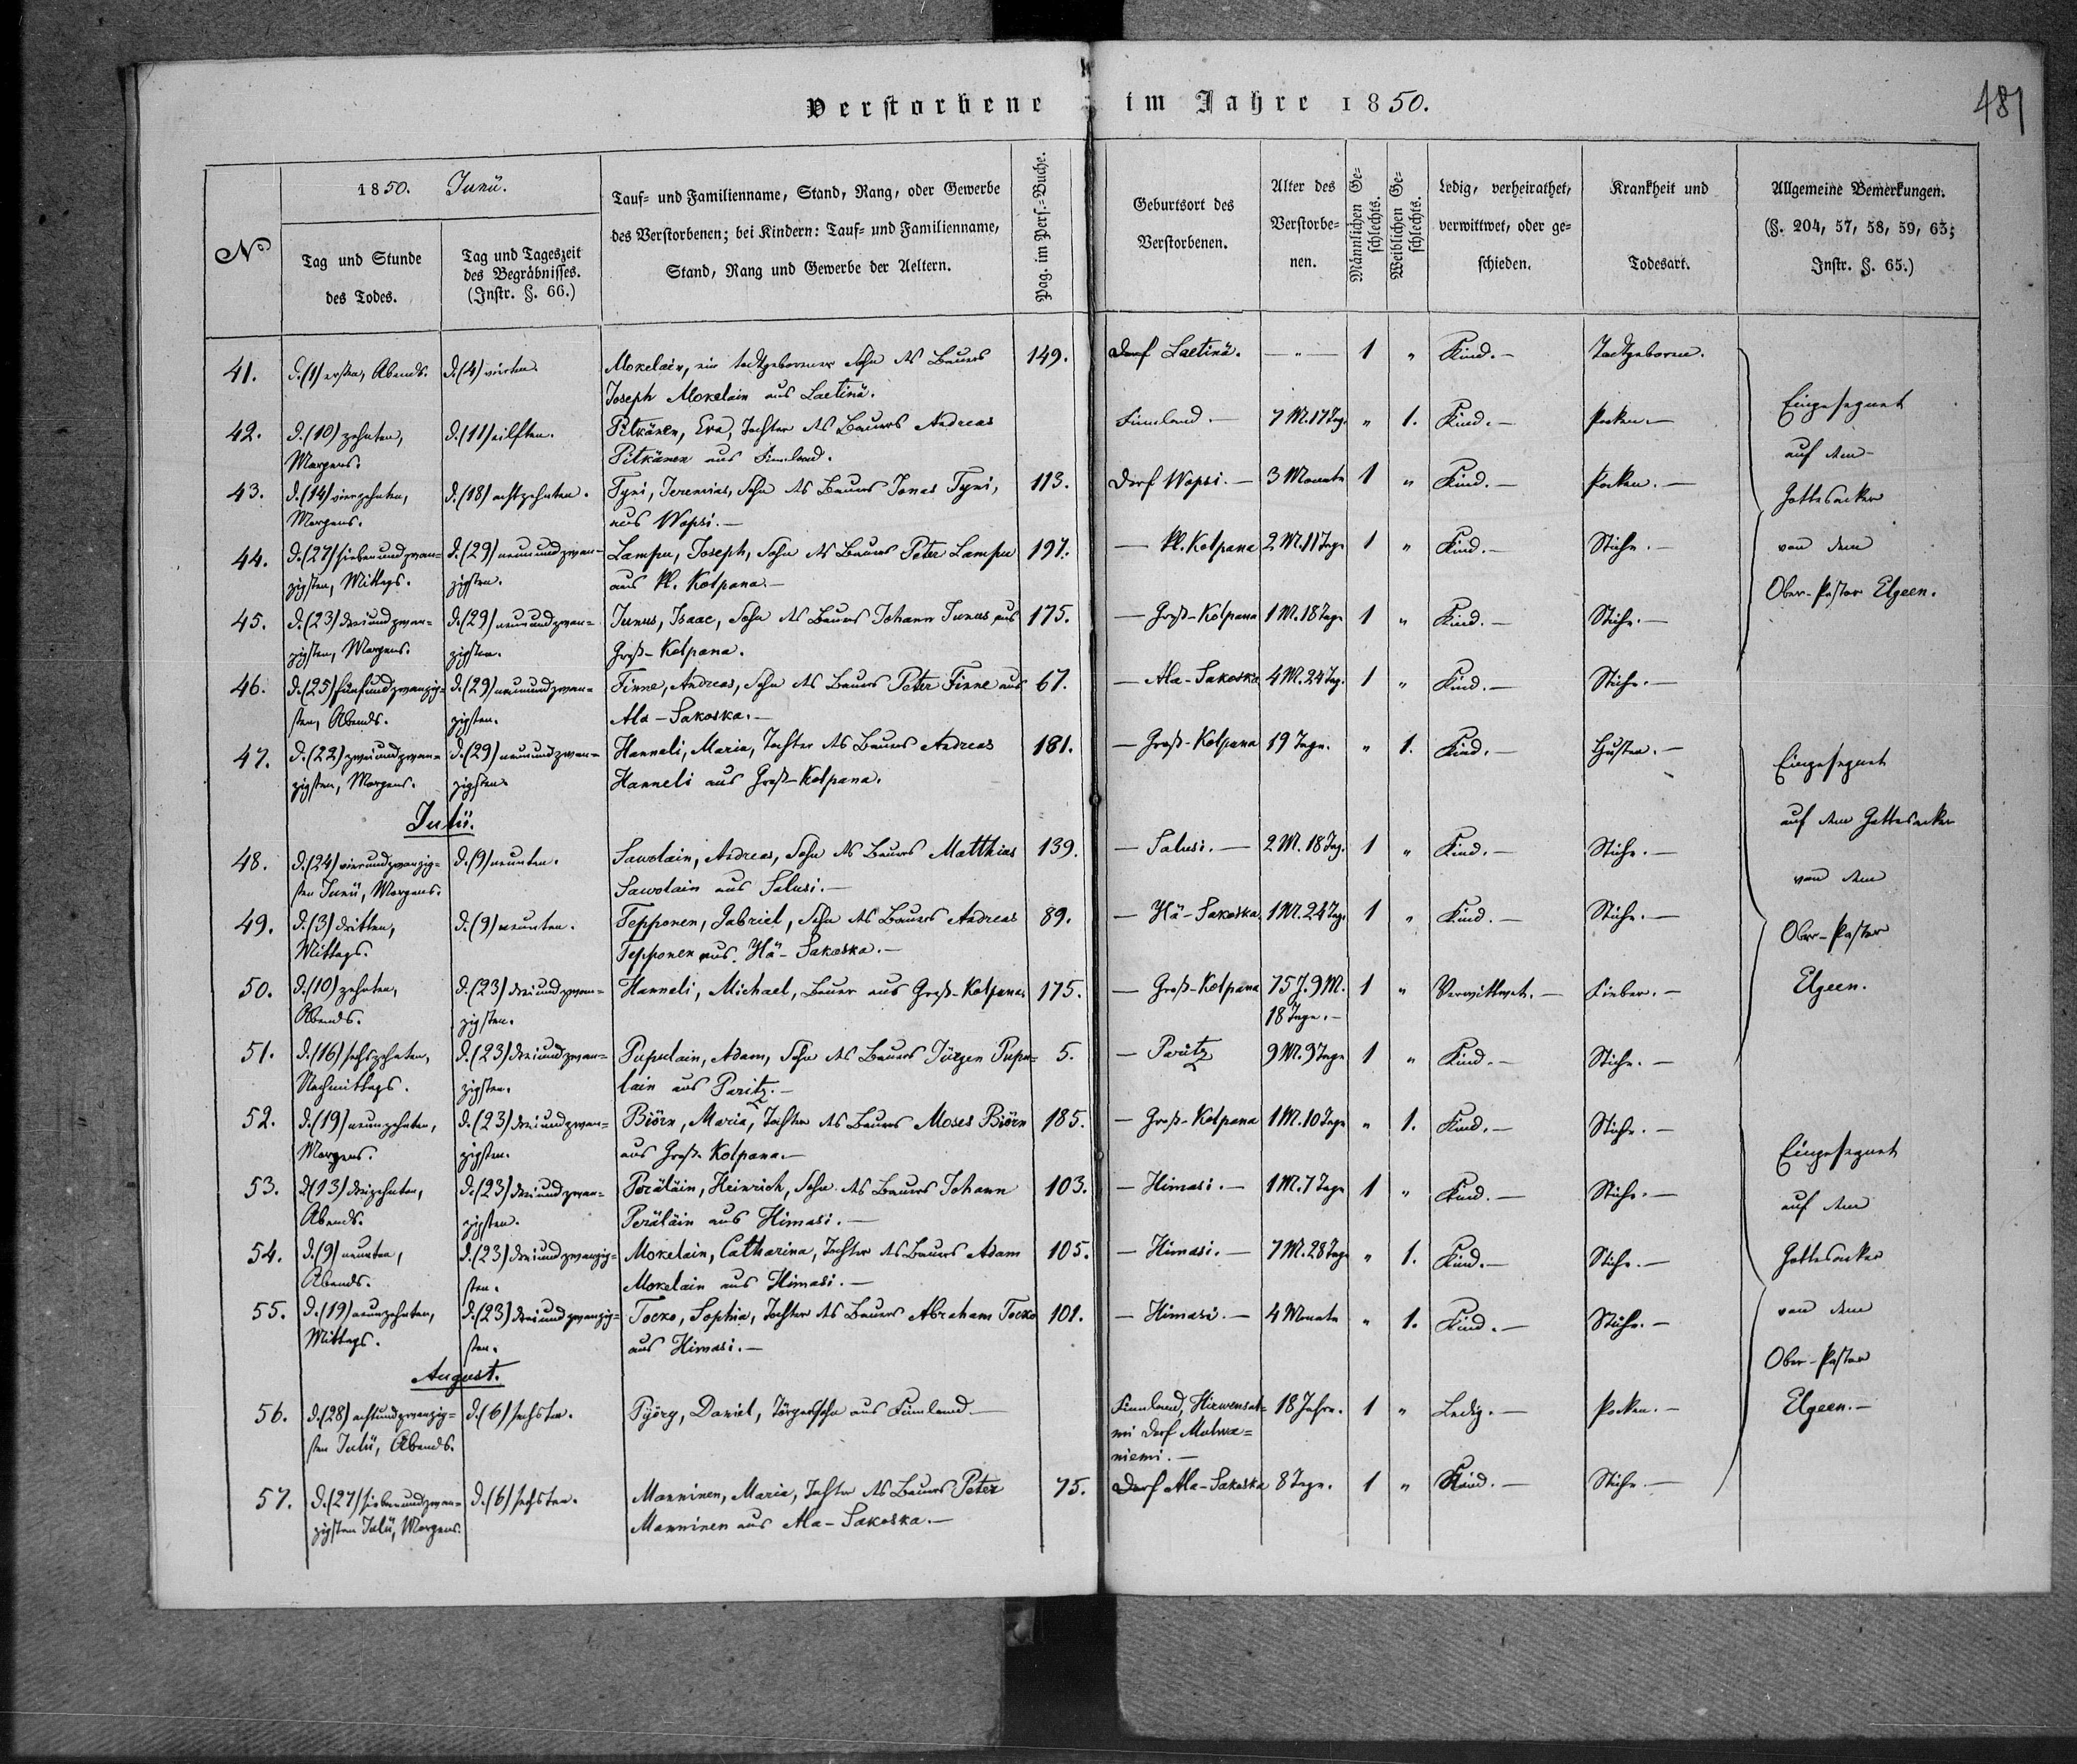 Verstorbene im Jahre 1850.
481
No
1850. Junii.
Tag und Stunde des Todes.
Tag und Tageszeit des Begräbnisses. (Instr. §. 66.)
Tauf- und Familienname, Stand, Rang, oder Gewerbe des Verstorbenen; bei Kindern: Tauf- und Familienname, Stand, Rang und Gewerbe der Aeltern.
Pag. im Pers.-Buche.
Geburtsort des Verstorbenen.
Alter des Verstorbenen.
Männlichen Geschlechts.
Weiblichen Geschlechts.
Ledig, verheirathet, verwittwet, oder geschieden.
Krankheit und Todesart.
Allgemeine Bemerkungen. (§. 204, 57, 58, 59, 63; Instr. §. 65.)
41. d. (1) ersten, Abends. d. (4) vierten. Mokelain, ein todtgeborener Sohn des Bauers 149. Dorf Laetinä. — " — 1 " Kind. — Todtgeboren.
Joseph Mokelain aus Laetinä.
42. d. (10) zehnten, d. (11) eilften. Pitkänen, Eva, Tochter des Bauers Andreas Finnland. — 7 M. 17 Tag. " 1. Kind. — Pocken. —
Morgens. Pitkänen aus Finnland.
43. d. (14) vierzehnten, d. (18) achtzehnten. Tyni, Jeremias, Sohn des Bauers Jonas Tyni, 113. Dorf Wopsi. — 3 Monate 1 " Kind. — Pocken. —
Morgens. aus Wopsi. —
44. d. (27) siebenundzwan- d. (29) neunundzwan- Lampu, Joseph, Sohn des Bauers Peter Lampu 197. — Kl. Kolpana 2 M. 11 Tage 1 " Kind. — Stiche. —
zigsten, Mittags. zigsten. aus Kl. Kolpana. —
45. d. (23) dreiundzwan- d. (29) neunundzwan- Junus, Isaac, Sohn des Bauers Johann Junus aus 175. — Groß-Kolpana 1 M. 18 Tage 1 " Kind. — Stiche. —
zigsten, Morgens. zigsten. Groß-Kolpana.
46. d. (25) fünfundzwanzig- d. (29) neunundzwan- Finne, Andreas, Sohn des Bauers Peter Finne aus 67. — Ala-Sakoska 4 M. 24 Tag. 1 " Kind. — Stiche. —
sten, Abends. zigsten. Ala-Sakoska. —
47. d. (22) zweiundzwan- d. (29) neunundzwan- Hanneli, Maria, Tochter des Bauers Andreas 181. — Groß-Kolpana 19 Tage. " 1. Kind. — Husten. —
zigsten, Morgens. zigsten. Hanneli aus Groß-Kolpana.
Eingesegnet
auf dem
Gottesacker
von dem
Ober-Pastor Elgeen.
Julii.
48. d. (24) vierundzwanzig- d. (9) neunten. Sawolain, Andreas, Sohn des Bauers Matthias 139. — Salusi. — 2 M. 18 Tag. 1 " Kind. — Stiche. —
sten Junii, Morgens. Sawolain aus Salusi. —
49. d. (3) dritten, d. (9) neunten. Tepponen, Gabriel, Sohn des Bauers Andreas 89. — Yliä-Sakoska 1 M. 24 Tag. 1 " Kind. — Stiche. —
Mittags. Tepponen aus
50. d. (10) zehnten, d. (23) dreiundzwan- Hanneli, Michael, Bauer aus Groß-Kolpana. 175. — Groß-Kolpana 75 J. 9 M. 1 " Verwittwet. — Fieber. —
Abends. zigsten. 18 Tage. —
51. d. (16) sechszehnten, d. (23) dreiundzwan- Pupulain, Adam, Sohn des Bauers Jürgen Pupu- 5. — Paritz 9 M. 9 Tage 1 " Kind. — Stiche. —
Nachmittags. zigsten. lain aus Paritz. —
Eingesegnet
auf dem Gottesacker
von dem
Ober-Pastor
Elgeen.
52. d. (19) neunzehnten, d. (23) dreiundzwan- Biörn, Maria, Tochter des Bauers Moses Biörn 185. — Groß-Kolpana 1 M. 10 Tage " 1. Kind. — Stiche. —
Morgens. zigsten. aus Groß-Kolpana. —
53. d. (13) dreizehnten, d. (23) dreiundzwan- Peräläin, Heinrich, Sohn des Bauers Johann 103. — Himasi. — 1 M. 7 Tage 1 " Kind. — Stiche. —
Abends. zigsten. Peräläin aus Himasi. —
54. d. (9) neunten, d. (23) dreiundzwanzig- Mokelain, Catharina, Tochter des Bauers Adam 105. — Himasi. — 7 M. 28 Tage " 1. Kind. — Stiche. —
Abends. sten. Mokelain aus Himasi. —
55. d. (19) neunzehnten, d. (23) dreiundzwanzig- Tocko, Sophia, Tochter des Bauers Abraham Tocko 101. — Himasi. — 4 Monate " 1. Kind. — Stiche. —
Mittags. sten. aus Himasi. —
August.
56. d. (28) achtundzwanzig- d. (6) sechsten. Pyöry, Daniel, aus Finnland. — Finnland, Hirwensal- 18 Jahre. 1 " Ledig. — Pocken. —
sten Julii, Abends. mi Dorf
niemi. —
57. d. (27) siebenundzwan- d. (6) sechsten. Manninen, Maria, Tochter des Bauers Peter 75. Dorf Ala-Sakoska 8 Tage. 1 " Kind. — Stiche. —
zigsten Julii, Morgens. Manninen aus Ala-Sakoska. —
Eingesegnet
auf dem
Gottesacker
von dem
Ober-Pastor
Elgeen. —